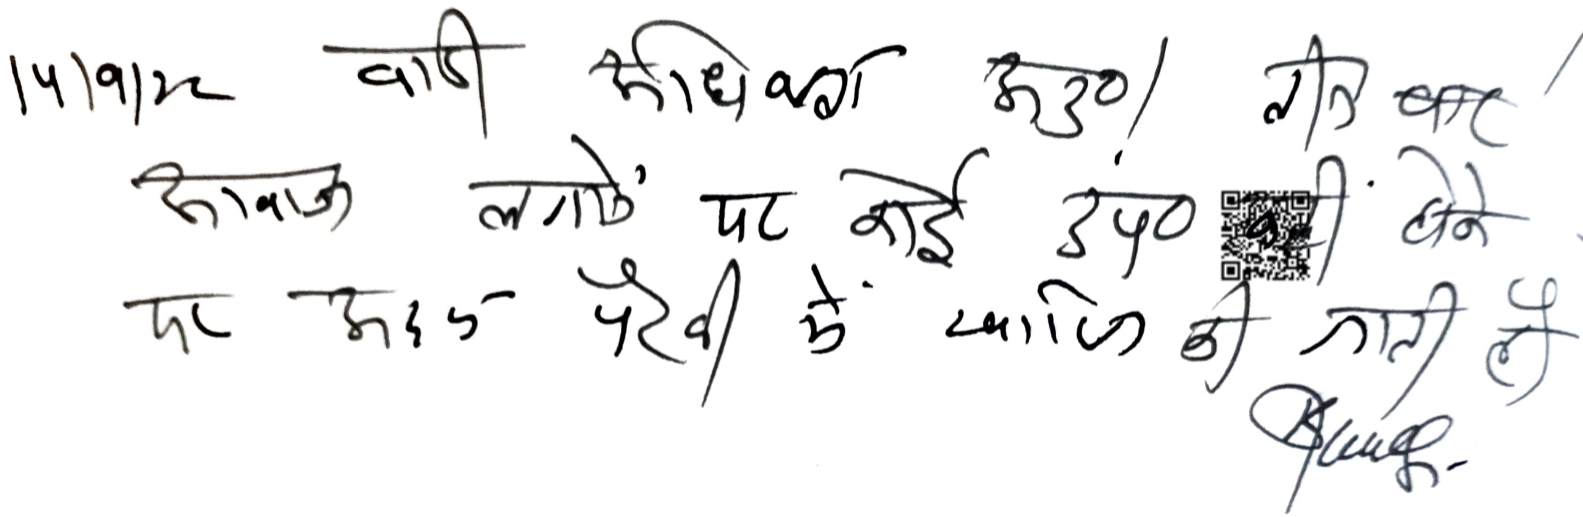 14/9/22 वादी अधिवक्ता अनु०। तीन बार
आवाज लगाने पर कोई उप० नहीं होने
पर अदम पैरवी में खारिज की जाती है